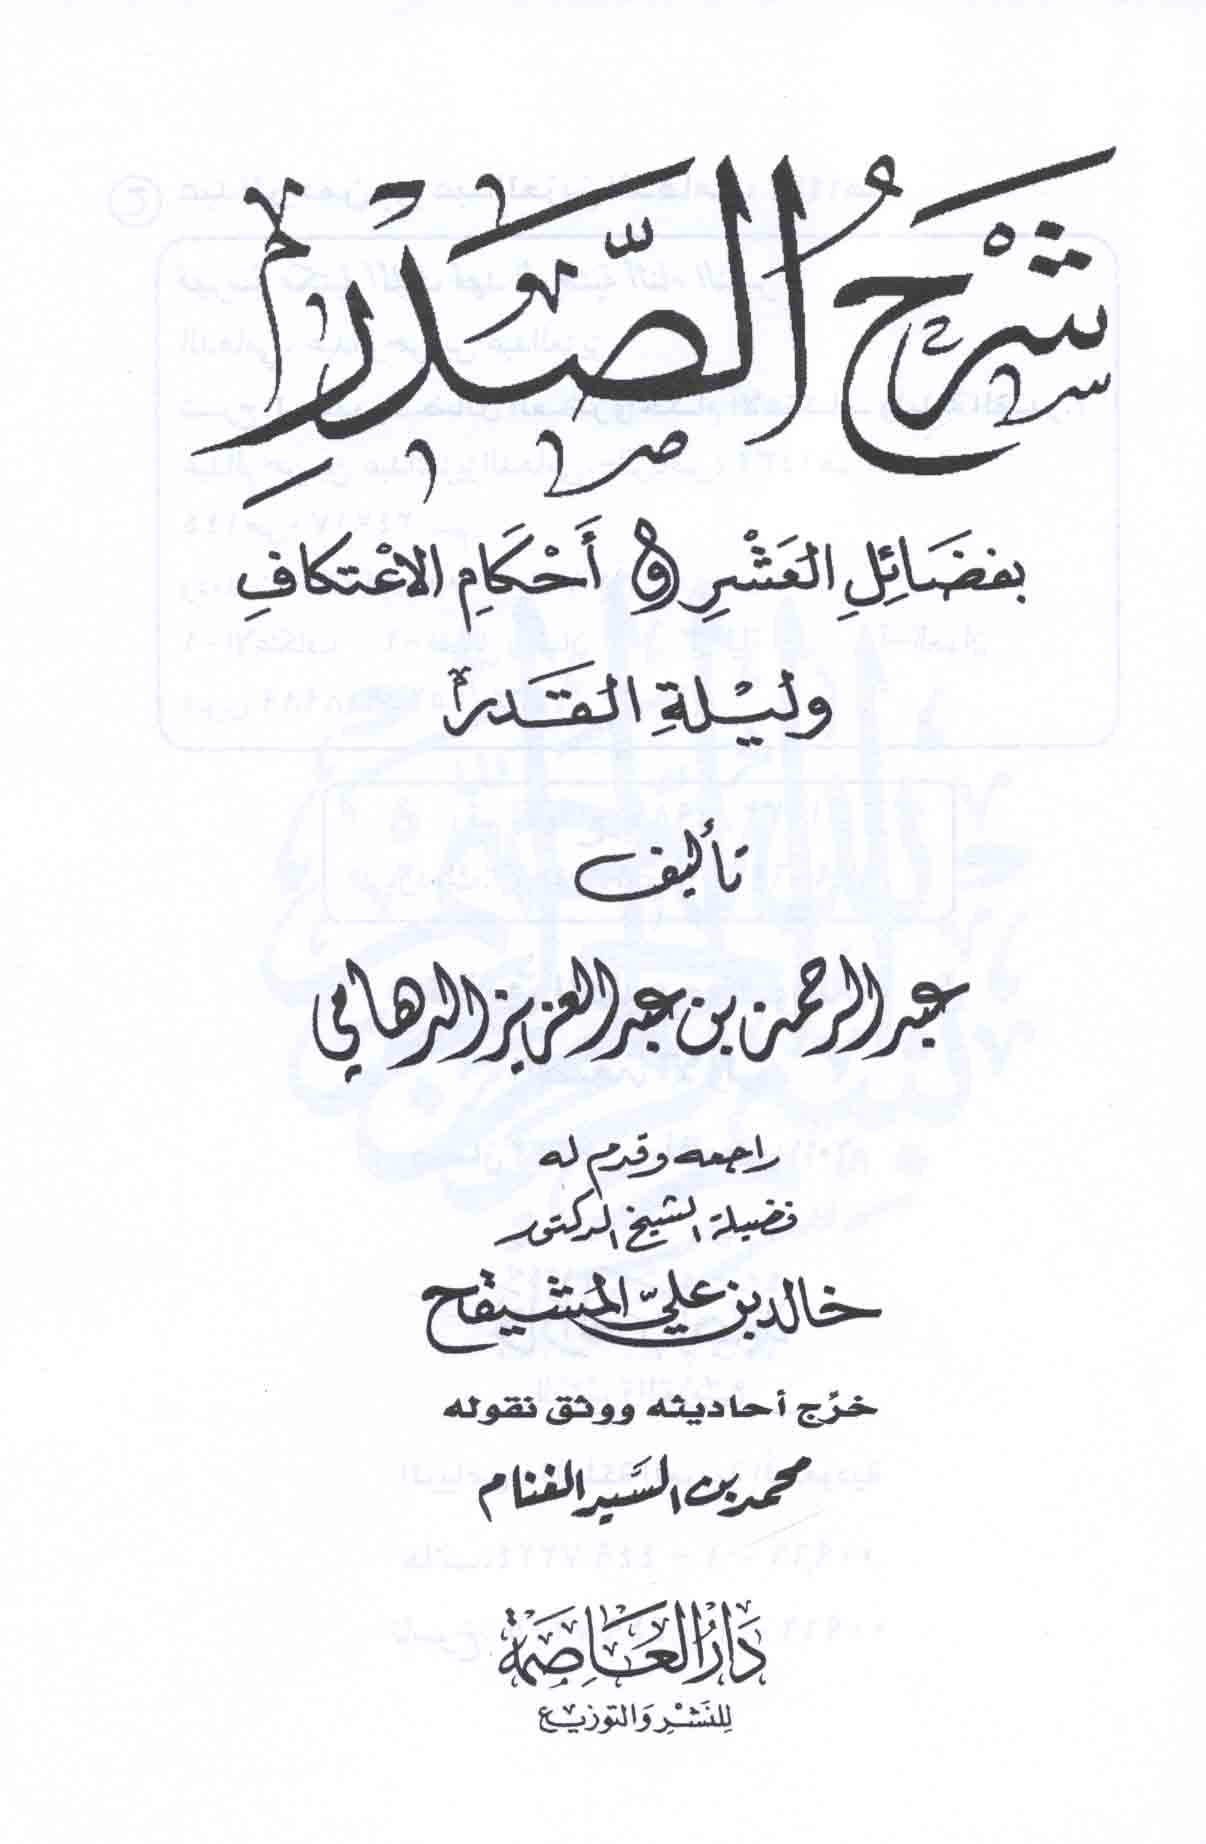 شَرْحُ الصَّدْرِ
بِفَضَائِلِ العَشْرِ وَ أَحْكَامِ الاعْتِكَافِ
وَلَيْلَةِ القَدْرِ
تأليف
عبد الرحمن بن عبد العزيز الدهامي
راجعه وقدم له
فضيلة الشيخ الدكتور
خالد بن عليّ المشيقح
خرّج أحاديثه ووثق نقوله
محمد بن السيد الفنام
دَارُ العَاصِمَة
لِلنَشْرِ وَالتوزيع